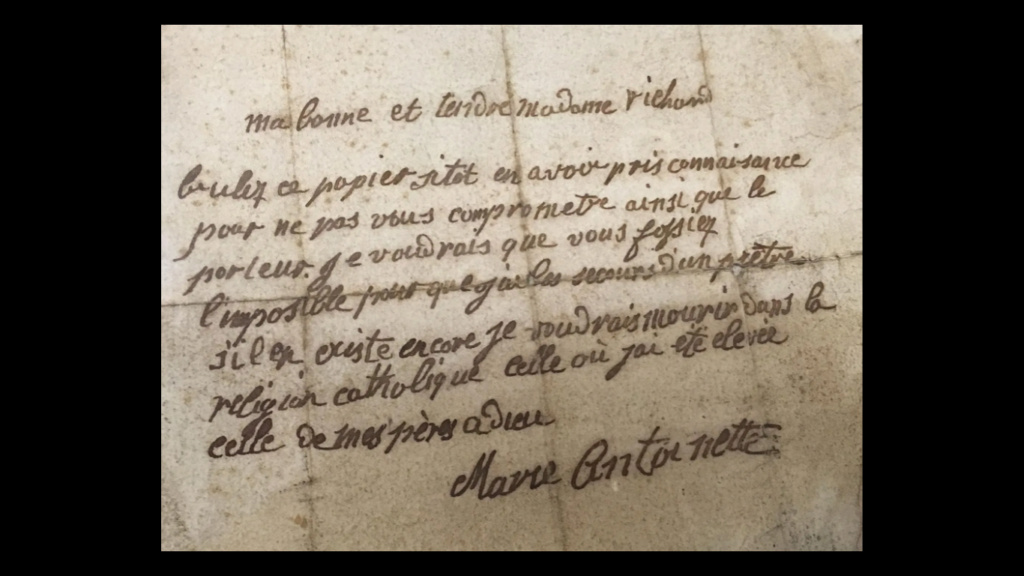 ma bonne et tendre madame richard
brulez ce papier sitot en avoir pris connaisance
pour ne pas vous comprometre ainsi que le
porteur. je voudrais que vous fassiez
l'imposible pour que j'ai les secours d'un prêtre
s'il en existe encore je voudrais mourir dans la
religion catholique celle où j'ai été elevée
celle de mes pères adieu
Marie Antoinette